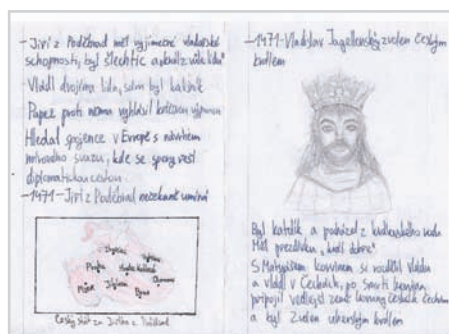 - Jiří z Poděbrad měl výjimečné vladařské
schopnosti, byl šlechtic a „král z vůle lidu“
Vládl dvojímu lidu, sám byl kališník
Papež proti němu vyhlásil křížovou výpravu
Hledal spojence v Evropě s návrhem
mírového svazu, kde se spory řeší
diplomatickou cestou
- 1471 - Jiří z Poděbrad nečekaně umírá
Praha
Plzeň
Jihlava
Brno
Olomouc
Český stát za Jiřího z Poděbrad
- 1471 - Vladislav Jagellonský zvolen českým
králem
Byl katolík a pocházel z královského rodu
Měl přezdívku „král dobře“
S Matyášem Korvínem si rozdělil vládu
a vládl v Čechách, po smrti Korvína
připojil vedlejší země koruny české k Čechám
a byl zvolen uherským králem